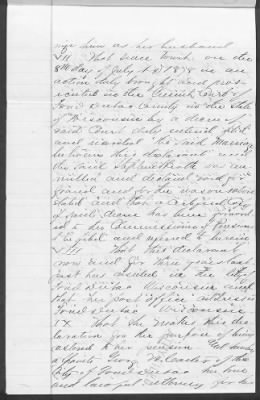 nize him as her husband
VII That since Towit, on the
8th day of July A.D. 1878 in an
action duly brought and pros-
ecuted in the Circuit Court of
Fond du Lac County in the State
of Wisconsin by a decree of
said Court duly entered filed
and recorded the said Marriage
between this declarant and
the said was an-
nulled and declared void
and for the reason
stated and that a certified copy
of said decree has been forward
to the Commissioner of Pensions
to be filed and referred to herein
VIII That this declarant
now and for three years last
past has resided in the City of
Fond du Lac Wisconsin and
that her post office address is
Fond du Lac Wisconsin
IX That she makes this dec-
laration for the purpose of being
restored to her pension and hereby
appoints Geo. W. Carter of the
City of Fond du Lac her true
and lawful attorney for her